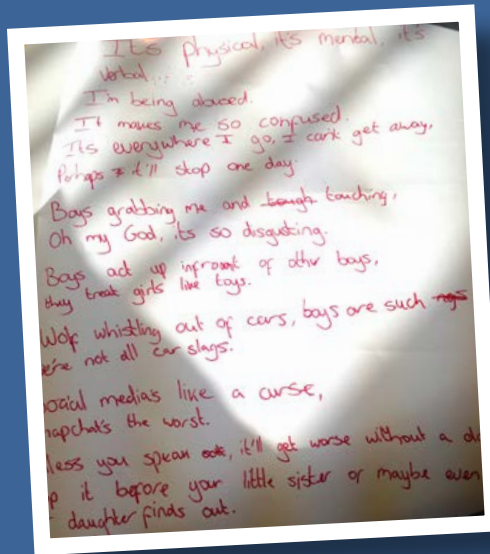 Its physical, it's mental, it's
verbal...
I'm being abused.
It makes me so confused.
Its everywhere I go, I can't get away,
Perhaps it'll stop one day.
Boys grabbing me and touching,
Oh my God, its so disgusting.
Boys act up infront of other boys,
they treat girls like toys.
Wolf whistling out of cars, boys are such
we're not all car slags.
social media's like a curse,
snapchat's the worst.
less you speak out, it'll get worse without a do
p it before your little sister or maybe even
daughter finds out.